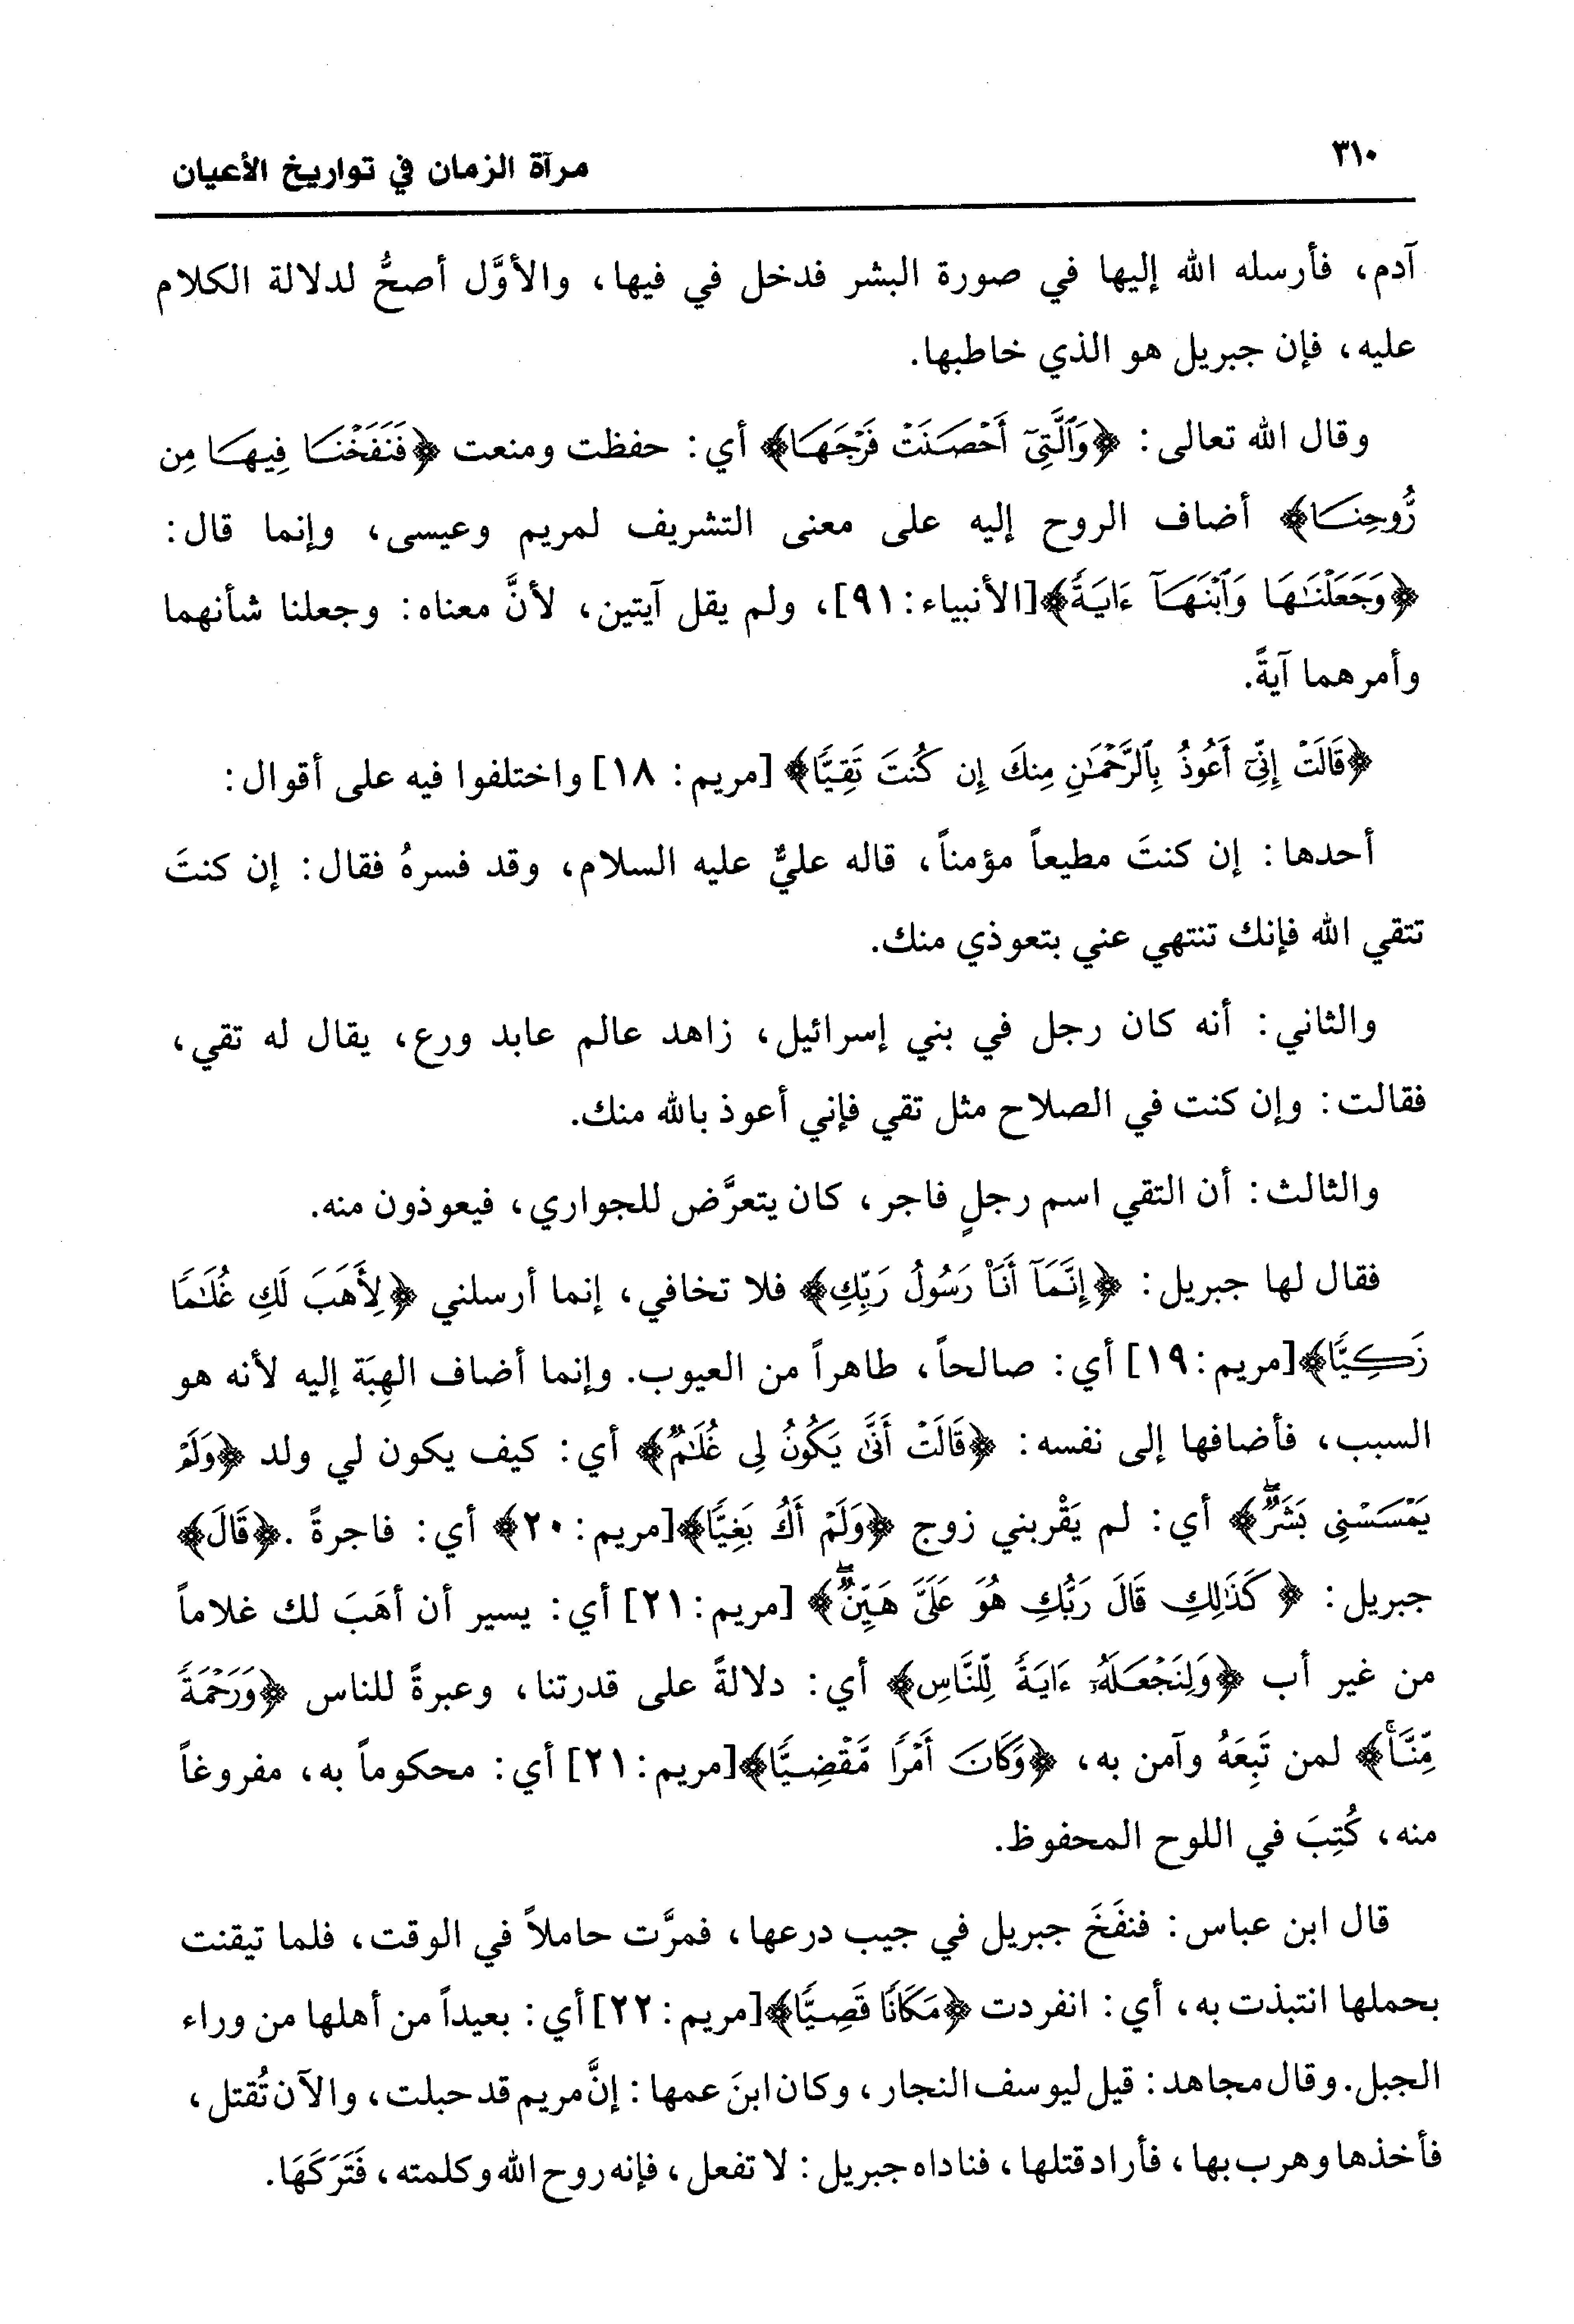 ٣١٠
مرآة الزمان في تواريخ الأعيان
آدم، فأرسله الله إليها في صورة البشر فدخل في فيها، والأوَّل أصحُّ لدلالة الكلام
عليه، فإن جبريل هو الذي خاطبها.
وقال الله تعالى: ﴿وَٱلَّتِىٓ أَحْصَنَتْ فَرْجَهَا﴾ أي: حفظت ومنعت ﴿فَنَفَخْنَا فِيهَا مِن
رُّوحِنَا﴾ أضاف الروح إليه على معنى التشريف لمريم وعيسى، وإنما قال:
﴿وَجَعَلْنَٰهَا وَٱبْنَهَآ ءَايَةً﴾[الأنبياء: ٩١]، ولم يقل آيتين، لأنَّ معناه: وجعلنا شأنهما
وأمرهما آيةً.
﴿قَالَتْ إِنِّىٓ أَعُوذُ بِٱلرَّحْمَٰنِ مِنكَ إِن كُنتَ تَقِيًّا﴾ [مريم: ١٨] واختلفوا فيه على أقوال:
أحدها: إن كنتَ مطيعاً مؤمناً، قاله عليٌّ عليه السلام، وقد فسرهُ فقال: إن كنتَ
تتقي الله فإنك تنتهي عني بتعوذي منك.
والثاني: أنه كان رجل في بني إسرائيل، زاهد عالم عابد ورع، يقال له تقي،
فقالت: وإن كنت في الصلاح مثل تقي فإني أعوذ بالله منك.
والثالث: أن التقي اسم رجلٍ فاجر، كان يتعرَّض للجواري، فيعوذون منه.
فقال لها جبريل: ﴿إِنَّمَآ أَنَا۠ رَسُولُ رَبِّكِ﴾ فلا تخافي، إنما أرسلني ﴿لِأَهَبَ لَكِ غُلَٰمًا
زَكِيًّا﴾[مريم: ١٩] أي: صالحاً، طاهراً من العيوب. وإنما أضاف الهِبَة إليه لأنه هو
السبب، فأضافها إلى نفسه: ﴿قَالَتْ أَنَّىٰ يَكُونُ لِى غُلَٰمٌ﴾ أي: كيف يكون لي ولد ﴿وَلَمْ
يَمْسَسْنِى بَشَرٌ﴾ أي: لم يَقْربني زوج ﴿وَلَمْ أَكُ بَغِيًّا﴾[مريم: ٢٠﴾ أي: فاجرةً .﴿قَالَ﴾
جبريل: ﴿كَذَٰلِكِ قَالَ رَبُّكِ هُوَ عَلَىَّ هَيِّنٌ ۖ﴾ [مريم: ٢١] أي: يسير أن أهَبَ لك غلاماً
من غير أب ﴿وَلِنَجْعَلَهُۥٓ ءَايَةً لِّلنَّاسِ﴾ أي: دلالةً على قدرتنا، وعبرةً للناس ﴿وَرَحْمَةً
مِّنَّا ۚ﴾ لمن تَبِعَهُ وآمن به، ﴿وَكَانَ أَمْرًا مَّقْضِيًّا﴾[مريم: ٢١] أي: محكوماً به، مفروغاً
منه، كُتِبَ في اللوح المحفوظ.
قال ابن عباس: فنفَخَ جبريل في جيب درعها، فمرَّت حاملاً في الوقت، فلما تيقنت
بحملها انتبذت به، أي: انفردت ﴿مَكَانًا قَصِيًّا﴾[مريم: ٢٢] أي: بعيداً من أهلها من وراء
الجبل. وقال مجاهد: قيل ليوسف النجار، وكان ابنَ عمها: إنَّ مريم قد حبلت، والآن تُقتل،
فأخذها وهرب بها، فأراد قتلها، فناداه جبريل: لا تفعل، فإنه روح الله وكلمته، فَتَرَكَهَا.